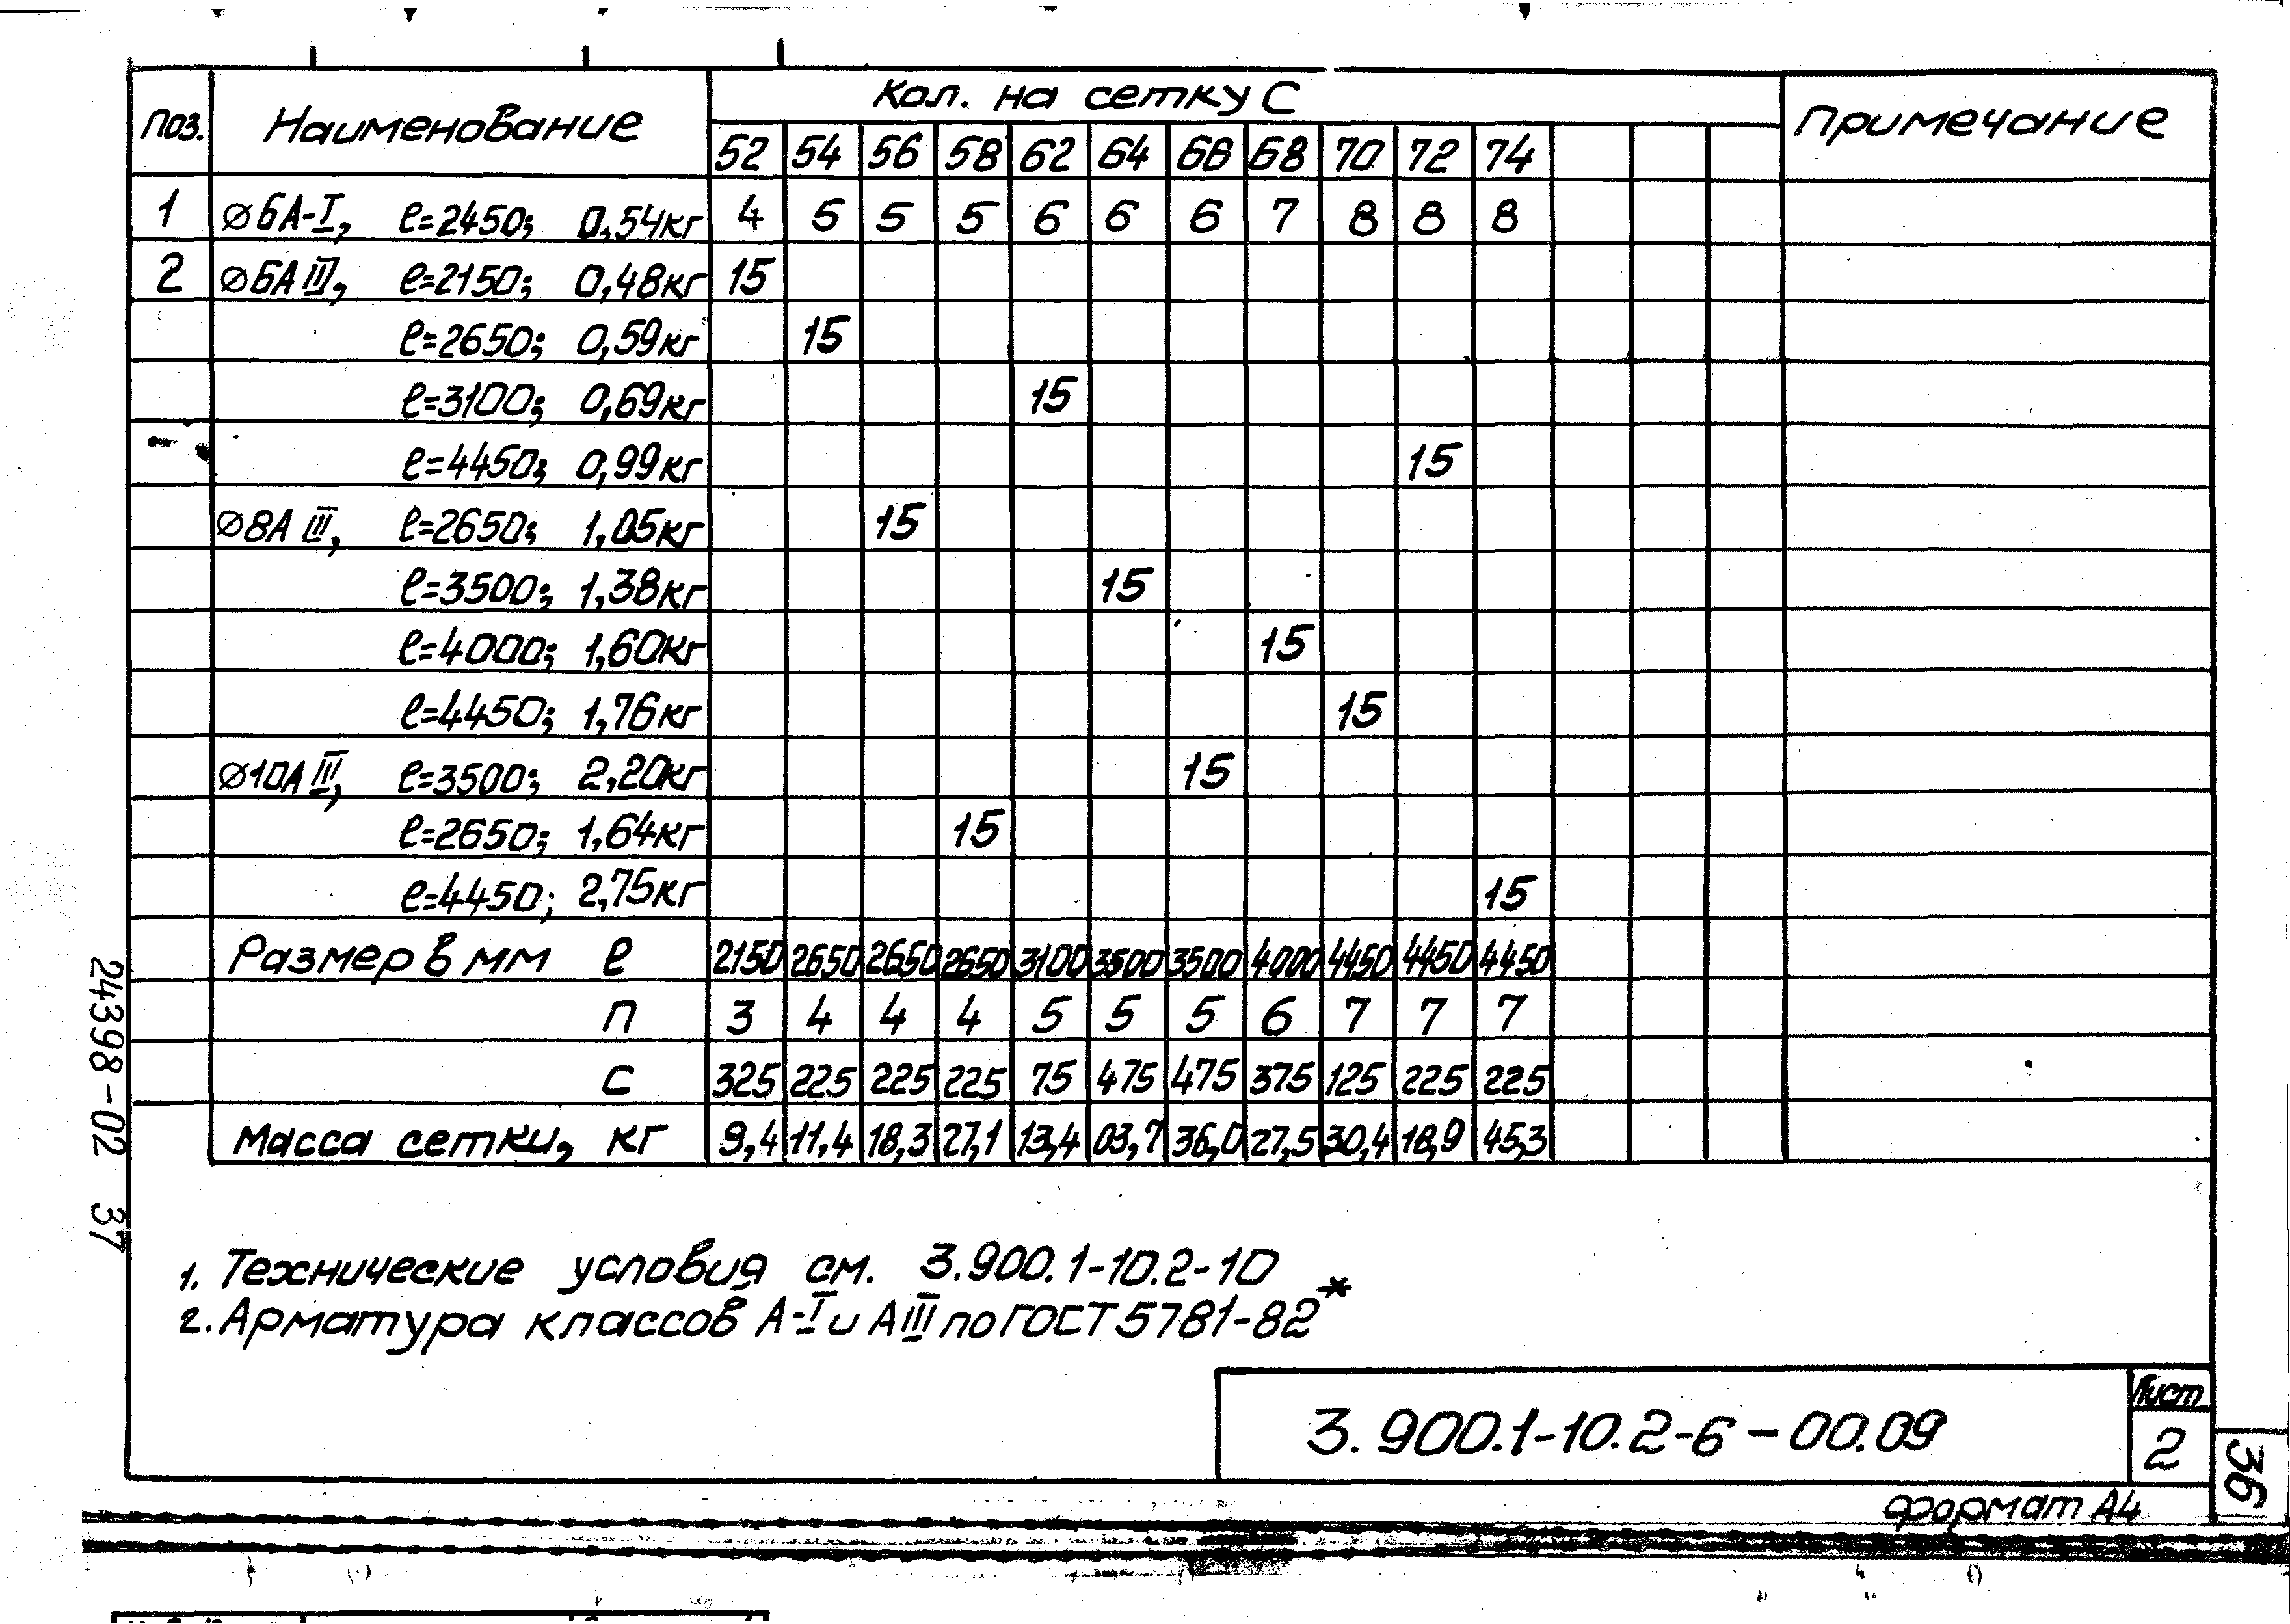 Поз. Наименование Кол. на сетку С Примечание
52 54 56 58 62 64 66 68 70 72 74
1 ∅6А-I, ℓ=2450; 0,54кг 4 5 5 5 6 6 6 7 8 8 8
2 ∅6АIII, ℓ=2150; 0,48кг 15
ℓ=2650; 0,59кг 15
ℓ=3100; 0,69кг 15
ℓ=4450; 0,99кг 15
∅8АIII, ℓ=2650; 1,05кг 15
ℓ=3500; 1,38кг 15
ℓ=4000; 1,60кг 15
ℓ=4450; 1,76кг 15
∅10АIII, ℓ=3500; 2,20кг 15
ℓ=2650; 1,64кг 15
ℓ=4450; 2,75кг 15
Размер в мм ℓ 2150 2650 2650 2650 3100 3500 3500 4000 4450 4450 4450
п 3 4 4 4 5 5 5 6 7 7 7
с 325 225 225 225 75 475 475 375 125 225 225
Масса сетки, кг 9,4 11,4 18,3 27,1 13,4 03,7 36,0 27,5 30,4 18,9 45,3
24398-02 37
1. Технические условия см. 3.900.1-10.2-10
2. Арматура классов А-I и АIII по ГОСТ 5781-82*
3.900.1-10.2-6-00.09
Лист
2
36
Формат А4